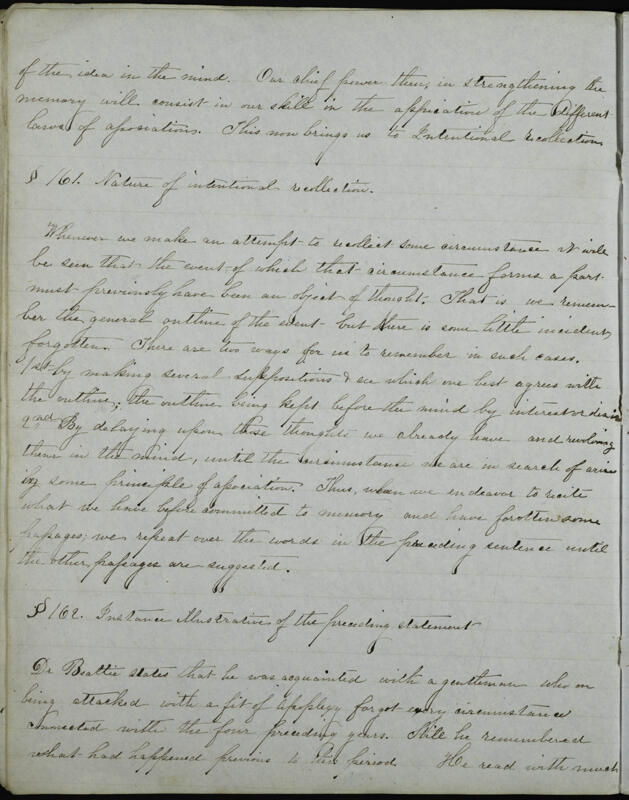 of the idea in the mind. Our chief power then, in strengthening the
memory will consist in our skill in the application of the Different
laws of association. This now brings us to Intentional recollection
§ 161. Nature of intentional recollection.
Whenever we make an attempt to recollect some circumstance it will
be seen that the event of which that circumstance forms a part
must previously have been an object of thought. That is we remem-
ber the general outline of the event but there is some little incident
forgotten. There are two ways for us to remember in such cases.
1st by making several suppositions & see which one best agrees with
the outline; the outline being kept before the mind by interest or desire
2nd By delaying upon those thoughts we already have and revolving
them in the mind, until the circumstance we are in search of arise
by some principle of association. Thus, when we endeavor to recite
what we have before committed to memory and have forotten some
passages; we repeat over the words in the preceding sentence until
the other passages are suggested.
§ 162. Instance illustrative of the preceding statement
Dr Beattie states that he was acquainted with a gentleman who on
being attacked with a fit of apoplexy forgot every circumstance
connected with the four preceding years. Still he remembered
what had happened previous to this period. He read with much